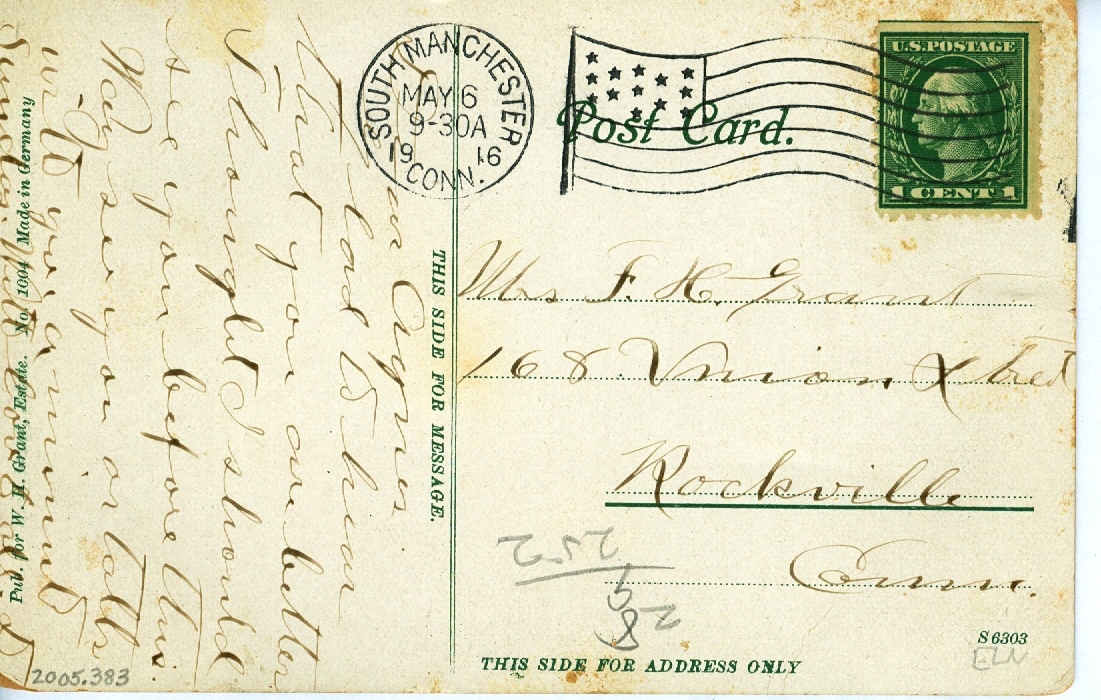 SOUTH MANCHESTER
MAY 6
9-30A
1916
CONN.
Post Card.
U.S. POSTAGE
1 CENT 1
Mrs F. H. Grant
168 Union Street
Rockville
Conn.
THIS SIDE FOR MESSAGE.
Agnes
Glad to hear
that you are better
Thought I should
see you before this.
May see you or talk
with you
Sunday
Pub. for W. H. Grant, Estate. No. 1004 Made in Germany
252
5
82
S 6303
ELN
THIS SIDE FOR ADDRESS ONLY
2005.383